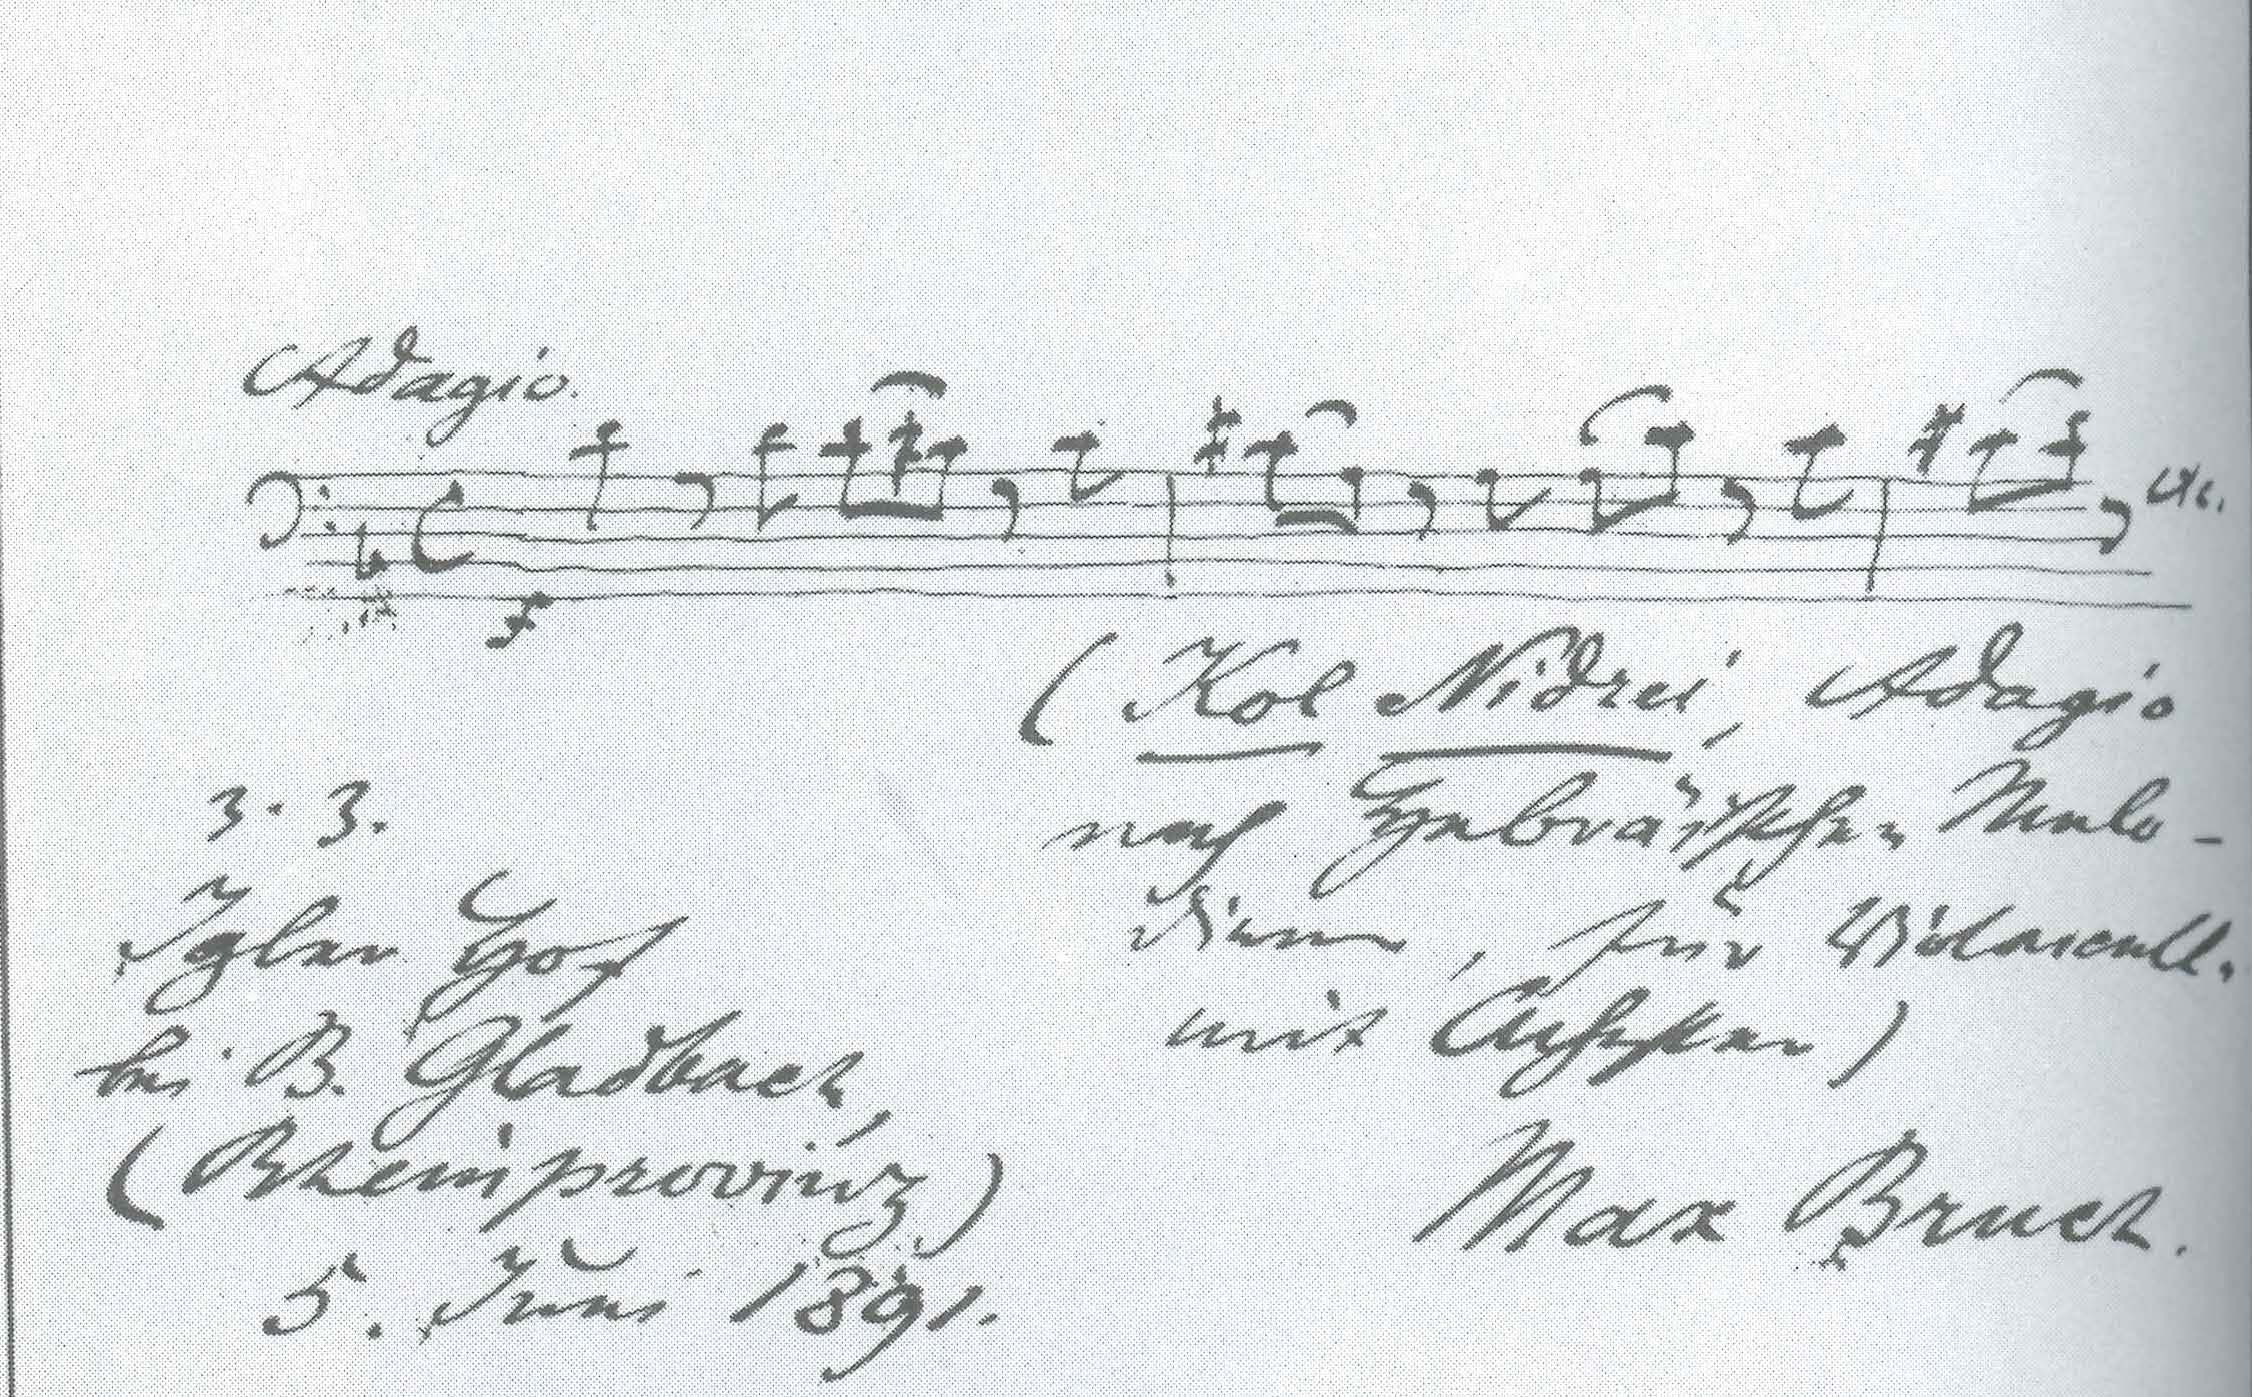 Adagio.
etc.
(Kol Nidrei, Adagio
nach Hebräischen Melo-
dieen, für Violoncell.
mit Orchester)
Max Bruch.
z. Z.
Igeler Hof
bei B. Gladbach,
(Rheinprovinz)
5. Juni 1891.